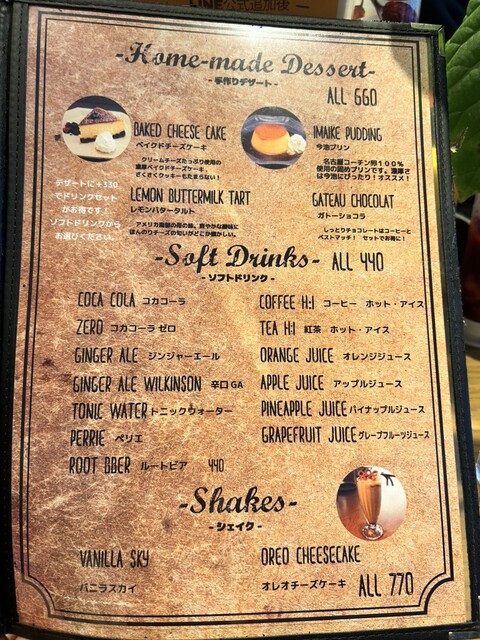 LINE公式追加後
-Home-made Dessert-
- 手作りデザート -
ALL 660
BAKED CHEESE CAKE
ベイクドチーズケーキ
クリームチーズたっぷり使用の
濃厚ベイクドチーズケーキ。
さくさくクッキーもたまらない！
IMAIKE PUDDING
今池プリン
名古屋コーチン卵100%
使用の固めプリンです。濃厚さ
は今池にぴったり！オススメ！
デザートに+330
でドリンクセット
がお得です！
ソフトドリンクから
お選びください。
LEMON BUTTERMILK TART
レモンバタータルト
アメリカ南部の母の味。爽やかな酸味に
ほんのりチーズの匂いがどこか懐かしい。
GATEAU CHOCOLAT
ガトーショコラ
しっとりチョコレートはコーヒーと
ベストマッチ！ セットでお得に！
-Soft Drinks-
ALL 440
- ソフトドリンク -
COCA COLA コカコーラ
COFFEE H:I コーヒー ホット・アイス
ZERO コカコーラ ゼロ
TEA H:I 紅茶 ホット・アイス
GINGER ALE ジンジャーエール
ORANGE JUICE オレンジジュース
GINGER ALE WILKINSON 辛口GA
APPLE JUICE アップルジュース
TONIC WATER トニックウォーター
PINEAPPLE JUICE パイナップルジュース
PERRIE ペリエ
GRAPEFRUIT JUICE グレープフルーツジュース
ROOT BBER ルートビア 440
-Shakes-
- シェイク -
VANILLA SKY
バニラスカイ
OREO CHEESECAKE
オレオチーズケーキ ALL 770